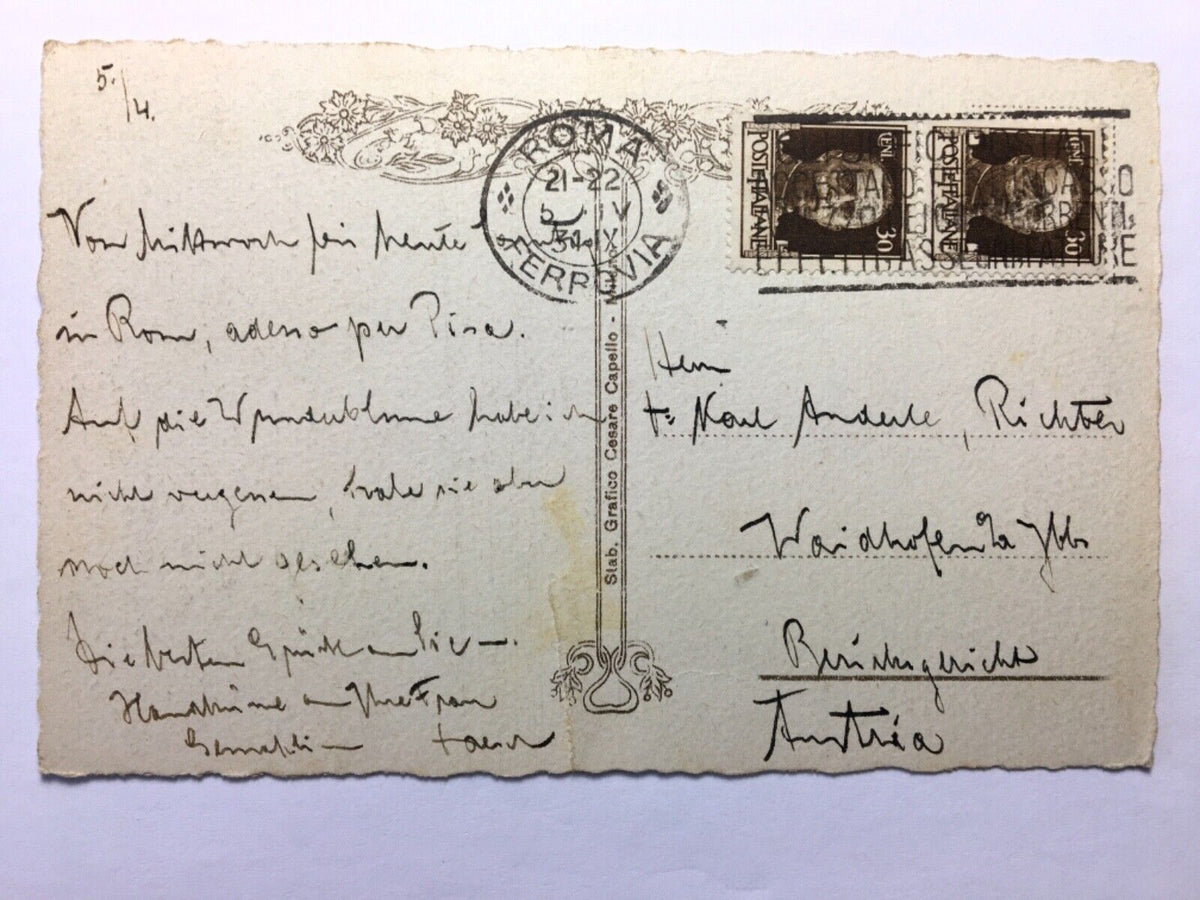 5./4.
Von Mittwoch bis heute
in Rom, adesso per Pisa.
Auf die Wunderblume habe ich
nicht vergessen, habe sie aber
noch nicht gesehen.
Die besten Grüße an Sie –.
Handküsse an Ihre Frau
Gemahlin
ROMA
21-22
5 IV
31 IX
FERROVIA
POSTE ITALIANE
CENT.
30
POSTE ITALIANE
CENT.
30
Stab. Grafico Cesare Capello - Mil
Herrn
Dr Karl Anderle, Richter
Waidhofen a/ Ybbs
Bezirksgericht
Austria